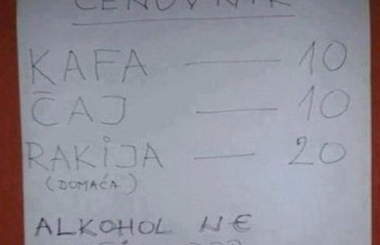 CENOVNIK
KAFA — 10
ČAJ — 10
RAKIJA — 20
(DOMAĆA)
ALKOHOL NE